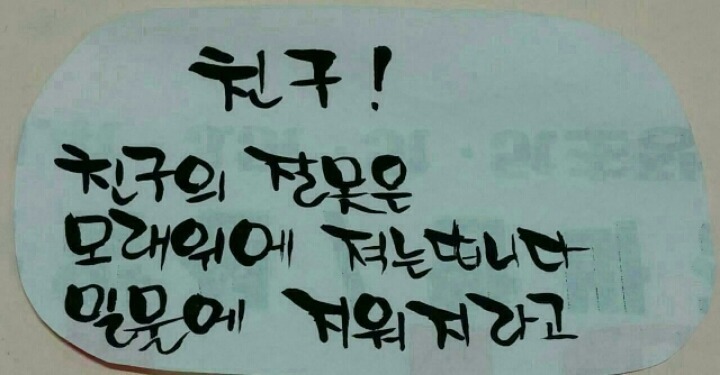 친구!
친구의 잘못은
모래위에 적는답니다
밀물에 지워지라고